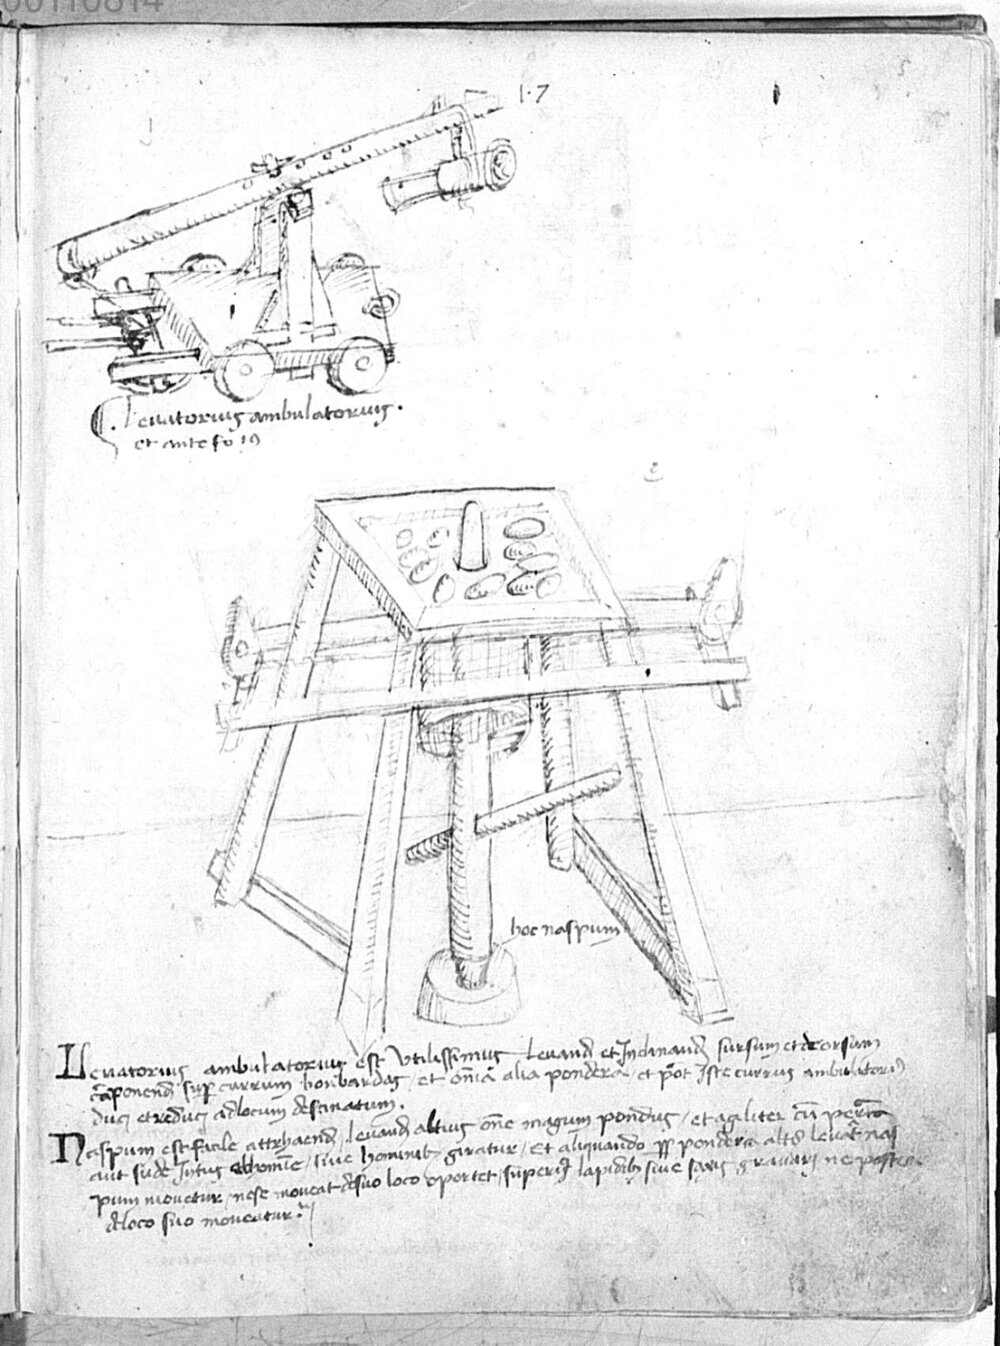 00110814
1·7
5
Leuatorius ambulatorius.
et ante fo 19
hoc naspum
Leuatorius ambulatorius est Vtilissimus Leuand et Inclinand sursum et deorsum
ponend sup currum bonbardas, et oīa alia pondera, et pōt Iste currus ambulatori9
duci et reduci ad locum destinatum.
Naspum est facile attrhaend, leuand altius oīe magnum pondus, et agiliter
aut sude Intus, siue hominib giratur, Et aliquando pondera alte nas
pum mouetur, ne se moueat de suo loco oportet, lapidib siue saxis grauari ne
de loco suo moueatur.